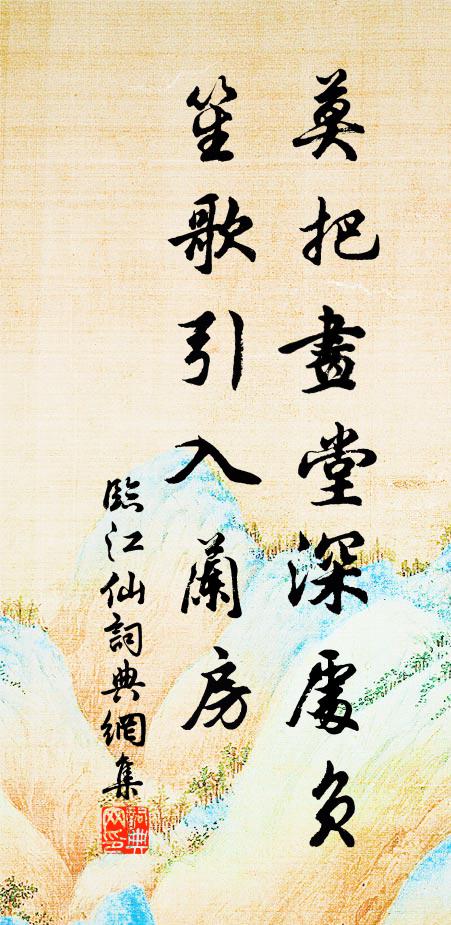 莫把畫堂深處負
笙歌引入蘭房
臨江仙詞典網集
詞典網印